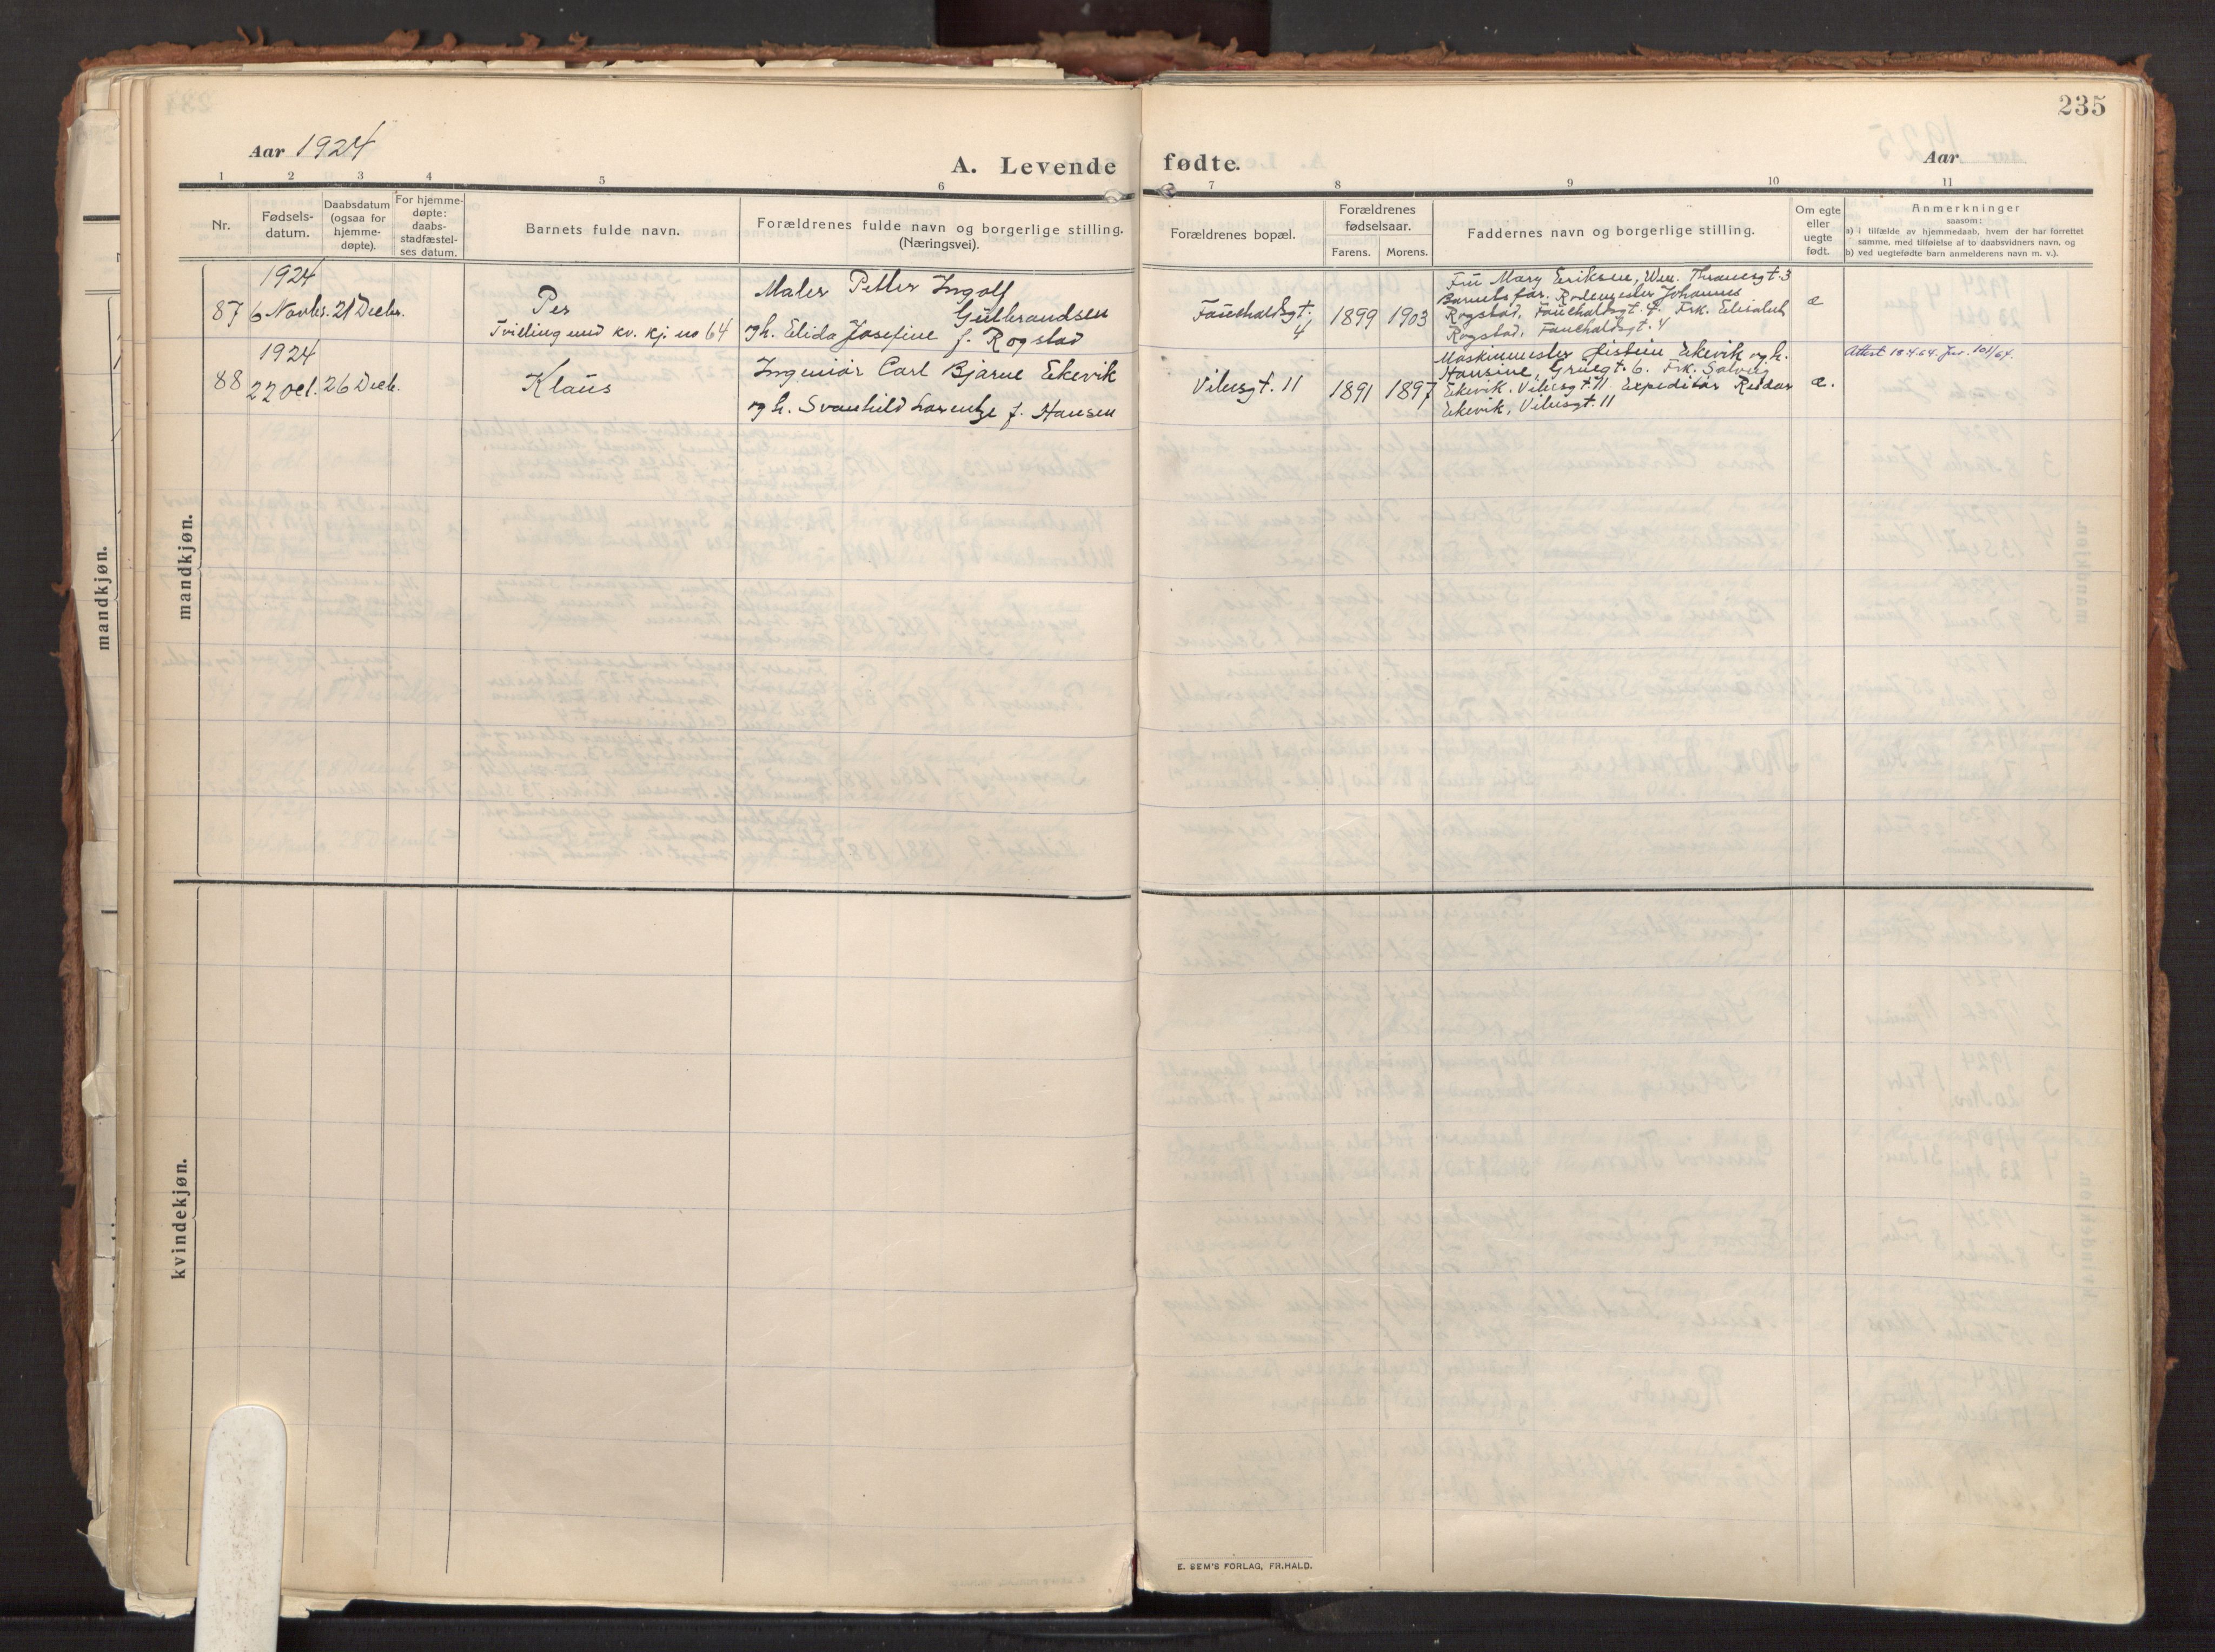 235
Aar 1924
A. Levende fødte.
Aar
1 2 3 4 5 6 7 8 9 10 11
Nr.
Fødsels-
datum.
Daabsdatum
(ogsaa for
hjemme-
døpte).
For hjemme-
døpte:
daabs-
stadfæstel-
ses datum.
Barnets fulde navn.
Forældrenes fulde navn og borgerlige stilling.
(Næringsvei).
Forældrenes bopæl.
Forældrenes
fødselsaar.
Farens. Morens.
Faddernes navn og borgerlige stilling.
Om egte
eller
uegte
født.
Anmerkninger
saasom:
a) i tilfælde av hjemmedaab, hvem der har forrettet
samme, med tilføielse af to daabsvidners navn, og
b) ved uegtefødte barn anmelderens navn m. v.).
mandkjøn.
mandkjøn.
1924
87 6 Novbr. 21 Decbr.
Per
Tvilling med kv. kj. no 64
Maler Petter Ingolf
Gulbrandsen
og h. Elida Josefine f. Rogstad
Fauchaldsgt.
4
1899 1903
Fru Mary Eriksen, Thranesgt. 3
Barnets far. Rodemester Johannes
Rogstad, Fauchaldsgt. 4. Frk. Elisabet
Rogstad, Fauchaldsgt. 4
æ
1924
88 22 Oct. 26 Decb.
Klaus
Ingeniør Carl Bjarne Ekevik
og h. Svanhild Lorentze f. Hansen
Vibesgt. 11
1891 1897
Maskinmester Øistein Ekevik og h.
Hansine, Gruegt. 6. Frk. Solveig
Ekevik, Vibesgt. 11. Expeditør Reidar
Ekevik, Vibesgt. 11
æ.
Attest 18.4.64. Jnr. 101/64.
kvindekjøn.
E. SEM'S FORLAG, FR.HALD.